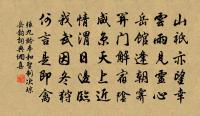 山祇亦望幸
雲雨見靈心
岳館逢朝霽
關門解宿陰
咸京天上近
清渭日邊臨
我武因冬狩
何言是即禽
張九齡奉和聖制次瓊
岳韻